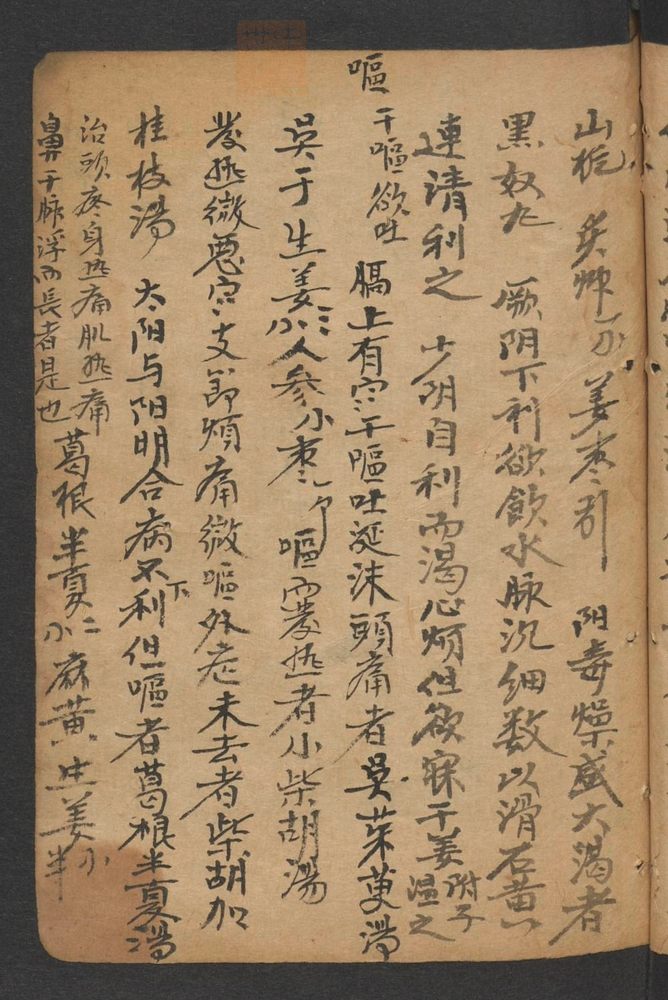 山枙 炙艸 姜枣引 阳毒燥盛大渴者
黑奴丸 厥阴下利欲飲水脉沉细数以滑石黄
連清利之 少阴自利而渴心烦但欲寐干姜附子温之
嘔 干嘔欲吐 膈上有寒干嘔吐涎沫頭痛者吴茱萸湯
吴于生姜 人参小枣 嘔而發热者小柴胡湯
發热微惡寒支節煩痛微嘔外症未去者柴胡加
桂枝湯 太阳与阳明合病不下利但嘔者葛根半夏湯
治頭疼身热痛肌热痛
鼻干脉浮而長者是也 葛根半夏 麻黄 生姜